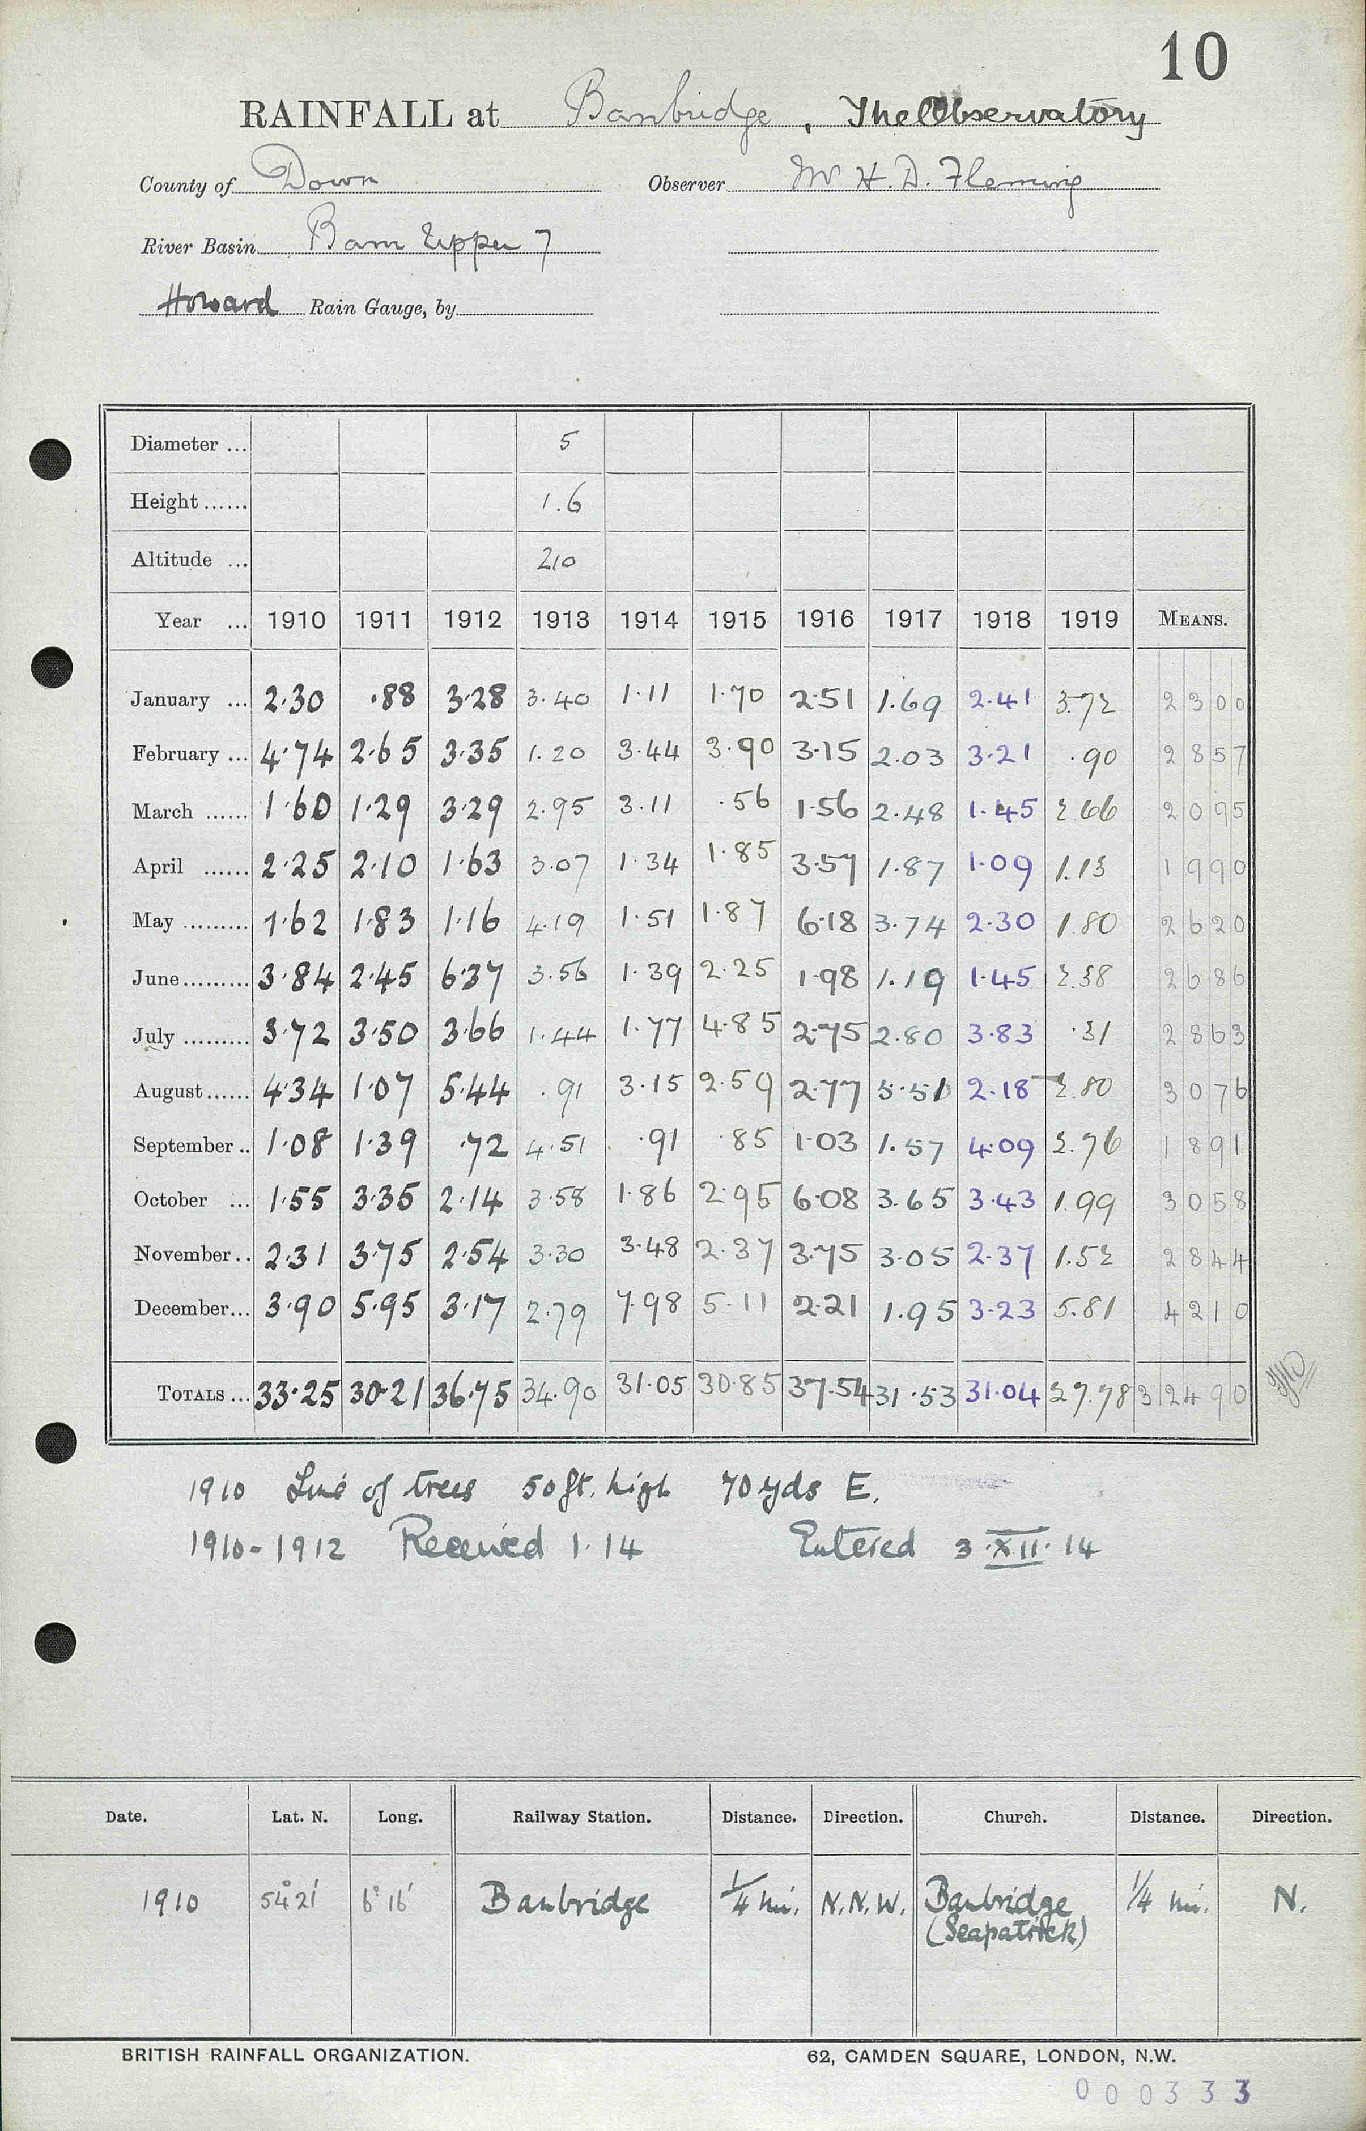 10
RAINFALL at Banbridge, The Observatory
County of Down Observer Mr H. D. Fleming
River Basin Bann Upper 7
Howard Rain Gauge, by
Diameter ... 5
Height ...... 1.6
Altitude ... 210
Year ... 1910 1911 1912 1913 1914 1915 1916 1917 1918 1919 MEANS.
January ... 2.30 .88 3.28 3.40 1.11 1.70 2.51 1.69 2.41 3.72 2300
February ... 4.74 2.65 3.35 1.20 3.44 3.90 3.15 2.03 3.21 .90 2857
March ...... 1.60 1.29 3.29 2.95 3.11 .56 1.56 2.48 1.45 2.66 2095
April ...... 2.25 2.10 1.63 3.07 1.34 1.85 3.57 1.87 1.09 1.13 1990
May ......... 1.62 1.83 1.16 4.19 1.51 1.87 6.18 3.74 2.30 1.80 2620
June ......... 3.84 2.45 6.37 3.56 1.39 2.25 1.98 1.19 1.45 2.38 2686
July ......... 3.72 3.50 3.66 1.44 1.77 4.85 2.75 2.80 3.83 .31 2863
August ...... 4.34 1.07 5.44 .91 3.15 2.59 2.77 5.51 2.18 2.80 3076
September .. 1.08 1.39 .72 4.51 .91 .85 1.03 1.57 4.09 2.76 1891
October ... 1.55 3.35 2.14 3.58 1.86 2.95 6.08 3.65 3.43 1.99 3058
November .. 2.31 3.75 2.54 3.30 3.48 2.37 3.75 3.05 2.37 1.52 2844
December ... 3.90 5.95 3.17 2.79 7.98 5.11 2.21 1.95 3.23 5.81 4210
TOTALS ... 33.25 30.21 36.75 34.90 31.05 30.85 37.54 31.53 31.04 27.78 32490
1910 Line of trees 50 ft. high 70 yds E.
1910-1912 Received 1.14 Entered 3.XII.14
Date. Lat. N. Long. Railway Station. Distance. Direction. Church. Distance. Direction.
1910 54°21' 6°16' Banbridge 1/4 mi. N.N.W. Banbridge 1/4 mi. N.
(Seapatrick)
BRITISH RAINFALL ORGANIZATION. 62, CAMDEN SQUARE, LONDON, N.W.
000333